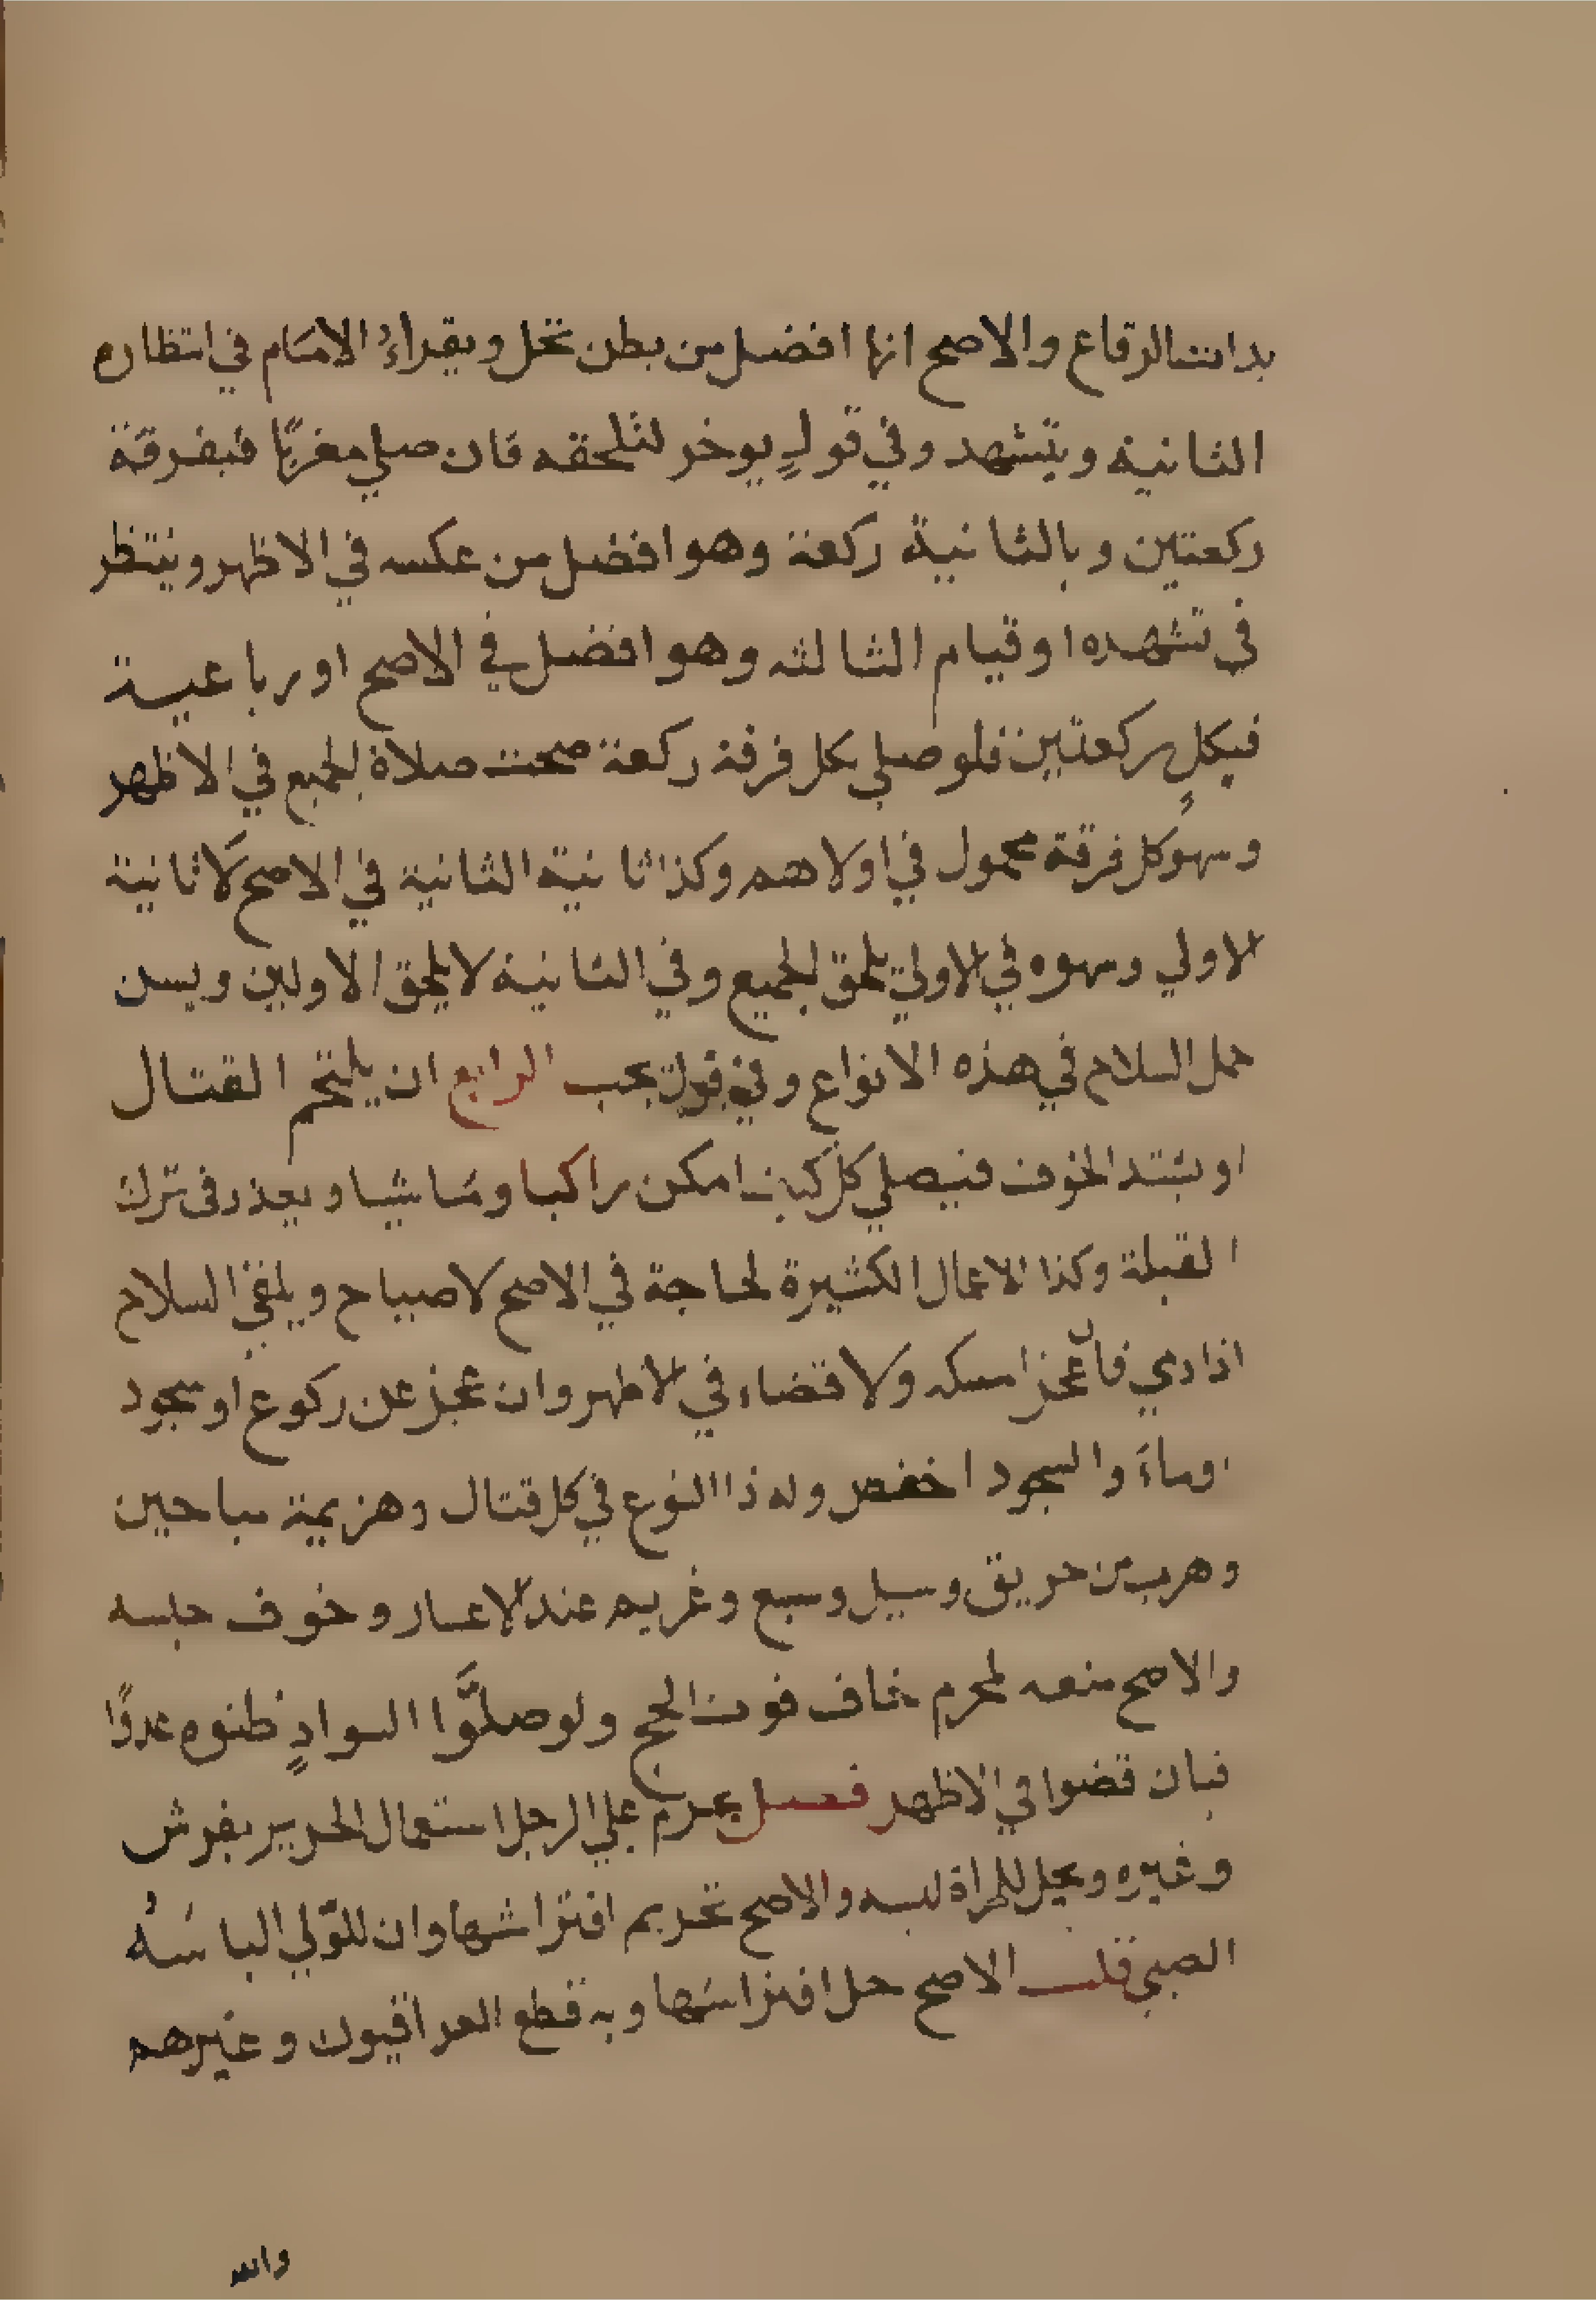 بذات الرقاع والاصح انها افضل من بطن نخل ويقراءُ الامام في انتظاره
الثانية ويتشهد وفي قولٍ يوخر لتلحقه فان صلي مغربًا فبفرقة
ركعتين وبالثانية ركعة وهو افضل من عكسه في الاظهر وينتظر
في تشهده او قيام الثالثه وهو افضل في الاصح او رباعية
فبكلٍ ركعتين فلو صلي بكل فرقة ركعة صحت صلاة الجميع في الاظهر
وسهو كل فرقة محمول في اولاهم وكذا ثانية الثانية في الاصح لَا ثانية
الاولي وسهوه في الاولي يلحق الجميع وفي الثانية لا يلحق الاولين ويسن
حمل السلاح في هذه الانواع وفي قول يجب الرابع ان يلتحم القتال
او يشتد الخوف فيصلي كل كيف امكن راكبا وماشيا ويعذر في ترك
القبلة وكذا الاعمال الكثيرة لحاجة في الاصح لا صياح ويلقي السلاح
اذا دمي فان عجز امسكه ولا قضاء في الاظهر وان عجز عن ركوع او سجود
اوماءَ والسجود اخفض وله ذا النوع في كل قتال وهزيمة مباحين
وهرب من حريق وسيل وسبع وغريم عند الاعسار وخوف حبسه
والاصح منعه لمحرم خاف فوت الحج ولو صلَّوا لسوادٍ ظنوه عدوًا
فبان قضوا في الاظهر فصل يحرم علي الرجل استعمال الحرير بفرش
وغيره ويحل للمراة لبسه والاصح تحريم افتراشها وان للولي الباسَهُ
الصبي قلت الاصح حل افتراشها وبه قطع العراقيون وغيرهم
والله